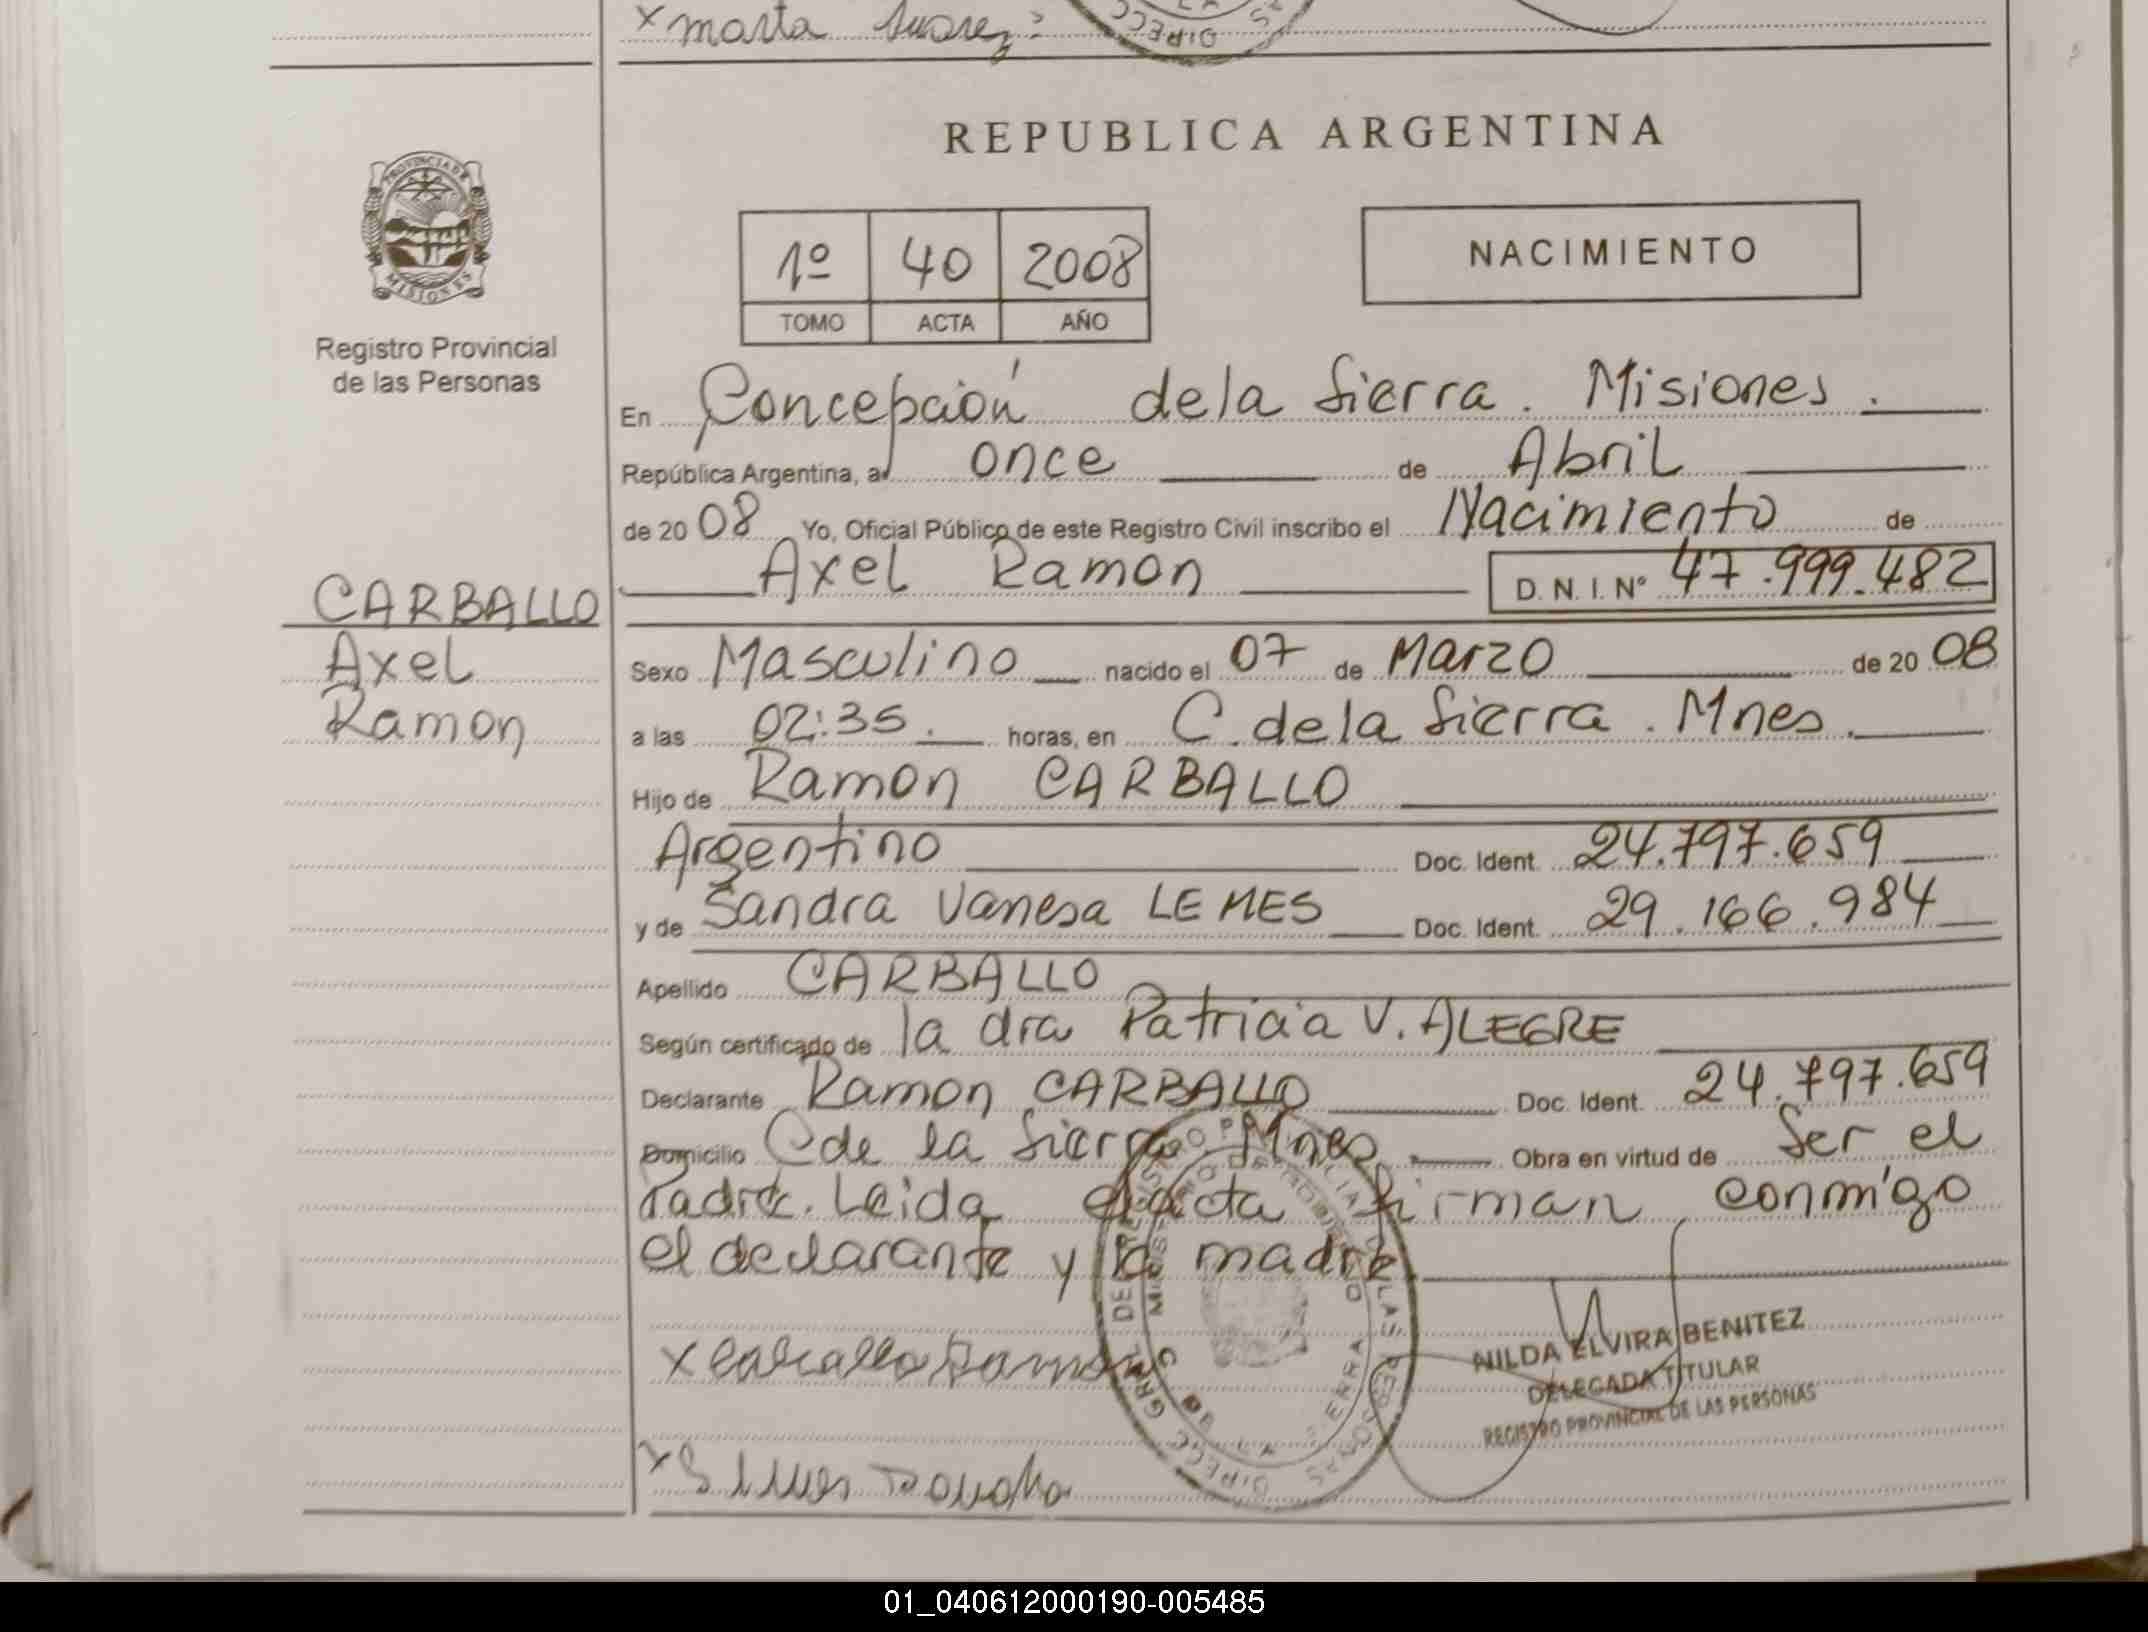 x marta Suarez
DIRECC
REPUBLICA ARGENTINA
PROVINCIA DE
MISIONES
Registro Provincial
de las Personas
1º 40 2008
TOMO ACTA AÑO
NACIMIENTO
En Concepción de la Sierra. Misiones.
República Argentina, a once de Abril
de 2008 Yo, Oficial Público de este Registro Civil inscribo el Nacimiento de
Axel Ramon D. N. I. Nº 47.999.482
CARBALLO
Axel
Ramon
Sexo Masculino nacido el 07 de Marzo de 2008
a las 02:35. horas, en C. de la Sierra. Mnes.
Hijo de Ramon CARBALLO
Argentino Doc. Ident. 24.797.659
y de Sandra Vanesa LEMES Doc. Ident. 29.166.984
Apellido CARBALLO
Según certificado de la dra Patricia V. ALEGRE
Declarante Ramon CARBALLO Doc. Ident. 24.797.659
Domicilio C de la Sierra Mnes. Obra en virtud de Ser el
Padre. Leida el acta firman conmigo
el declarante y la madre.
x Carballo Ramon
NILDA ELVIRA BENITEZ
DELEGADA TITULAR
REGISTRO PROVINCIAL DE LAS PERSONAS
01_040612000190-005485